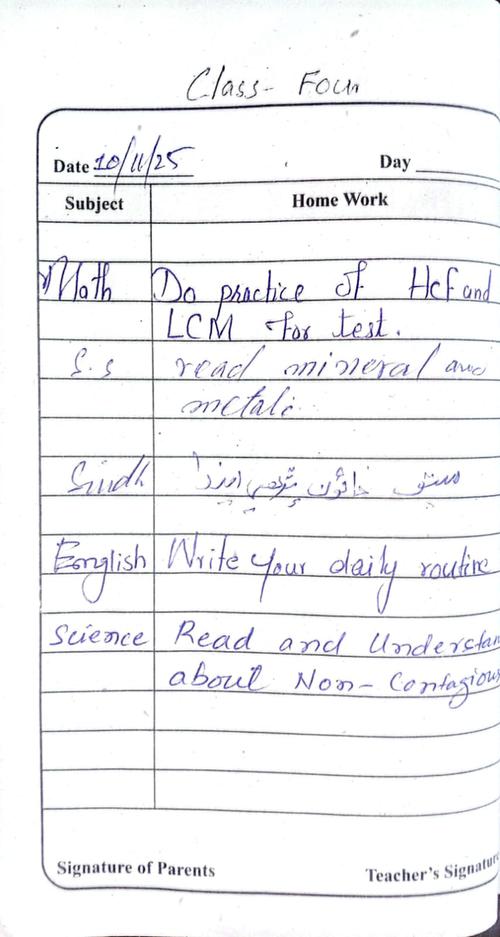 Class- Four
Date 10/11/25 Day
Subject Home Work
Math Do practice of Hcf and
LCM for test.
S.S read mineral and
metali
Sindh
English Write your daily routine
Science Read and Understan
about Non-Contagious
Signature of Parents Teacher's Signature